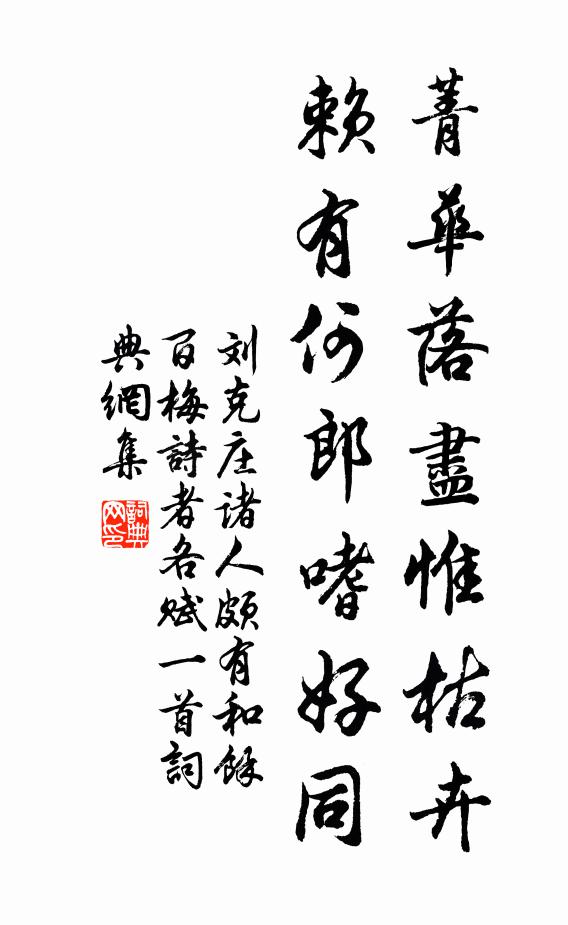 菁華落盡惟枯卉
賴有何郎嗜好同
刘克庄诸人頗有和餘
百梅詩者各赋一首詞
典網集
詞典網印